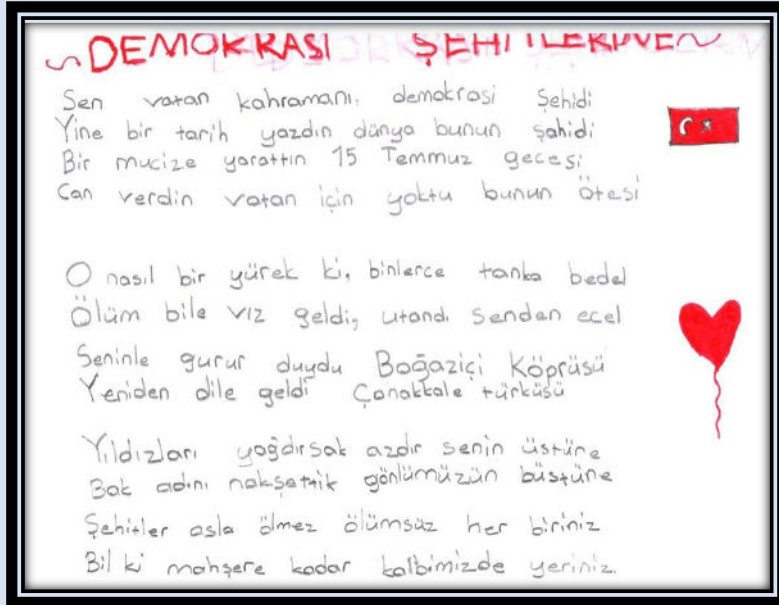 DEMOKRASİ ŞEHİTLERİNE
Sen vatan kahramanı, demokrasi Şehidi
Yine bir tarih yazdın dünya bunun şahidi
Bir mucize yarattın 15 Temmuz gecesi
Can verdin vatan için yoktu bunun ötesi
O nasıl bir yürek ki, binlerce tanka bedel
Ölüm bile vız geldi, utandı Senden ecel
Seninle gurur duydu Boğaziçi Köprüsü
Yeniden dile geldi Çanakkale türküsü
Yıldızları yağdırsak azdır senin üstüne
Bak adını nakşettik gönlümüzün büstüne
Şehitler asla ölmez ölümsüz her biriniz
Bil ki mahşere kadar kalbimizde yeriniz.